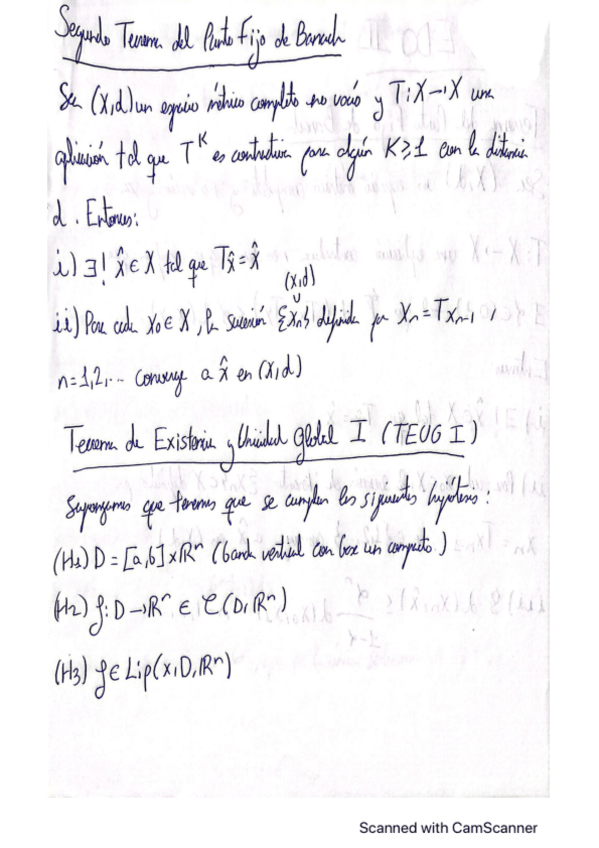 Segundo Teorema del Punto Fijo de Banach
Sea (X,d) un espacio métrico completo no vacío y T:X→X una
aplicación tal que T^K es contractiva para algún K≥1 con la distancia
d. Entonces:
i) ∃! x̂∈X tal que Tx̂=x̂
(X,d)
∪
ii) Para cada x₀∈X, la sucesión {xₙ} definida por xₙ=Txₙ₋₁,
n=1,2,... converge a x̂ en (X,d)
Teorema de Existencia y Unicidad Global I (TEUG I)
Supongamos que tenemos que se cumplen las siguientes hipótesis:
(H1) D=[a,b]×ℝⁿ (banda vertical con base un compacto)
(H2) f:D→ℝⁿ ∈ C(D,ℝⁿ)
(H3) f∈Lip(x,D,ℝⁿ)
Scanned with CamScanner